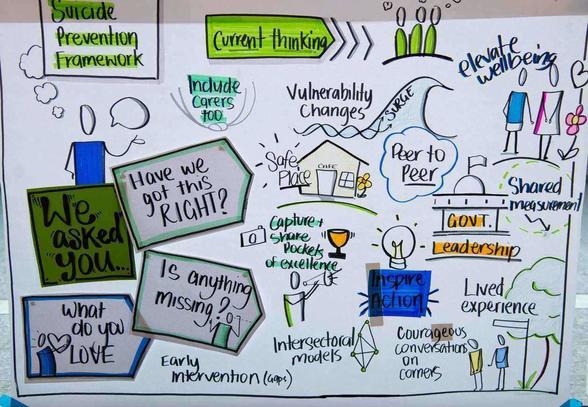 Suicide
Prevention
Framework
Current thinking
elevate
wellbeing
Include
Carers
too
Vulnerability
Changes
SURGE
Have we
got this
RIGHT?
Safe
Place
CAFE
Peer to
Peer
Shared
measurement
We
asked
you...
GOVT.
Leadership
Capture +
Share
Pockets
of excellence
Is anything
missing?
Inspire
Action
Lived
experience
What
do you
LOVE
Intersectoral
models
Courageous
conversations
on
corners
Early
Intervention (gaps)